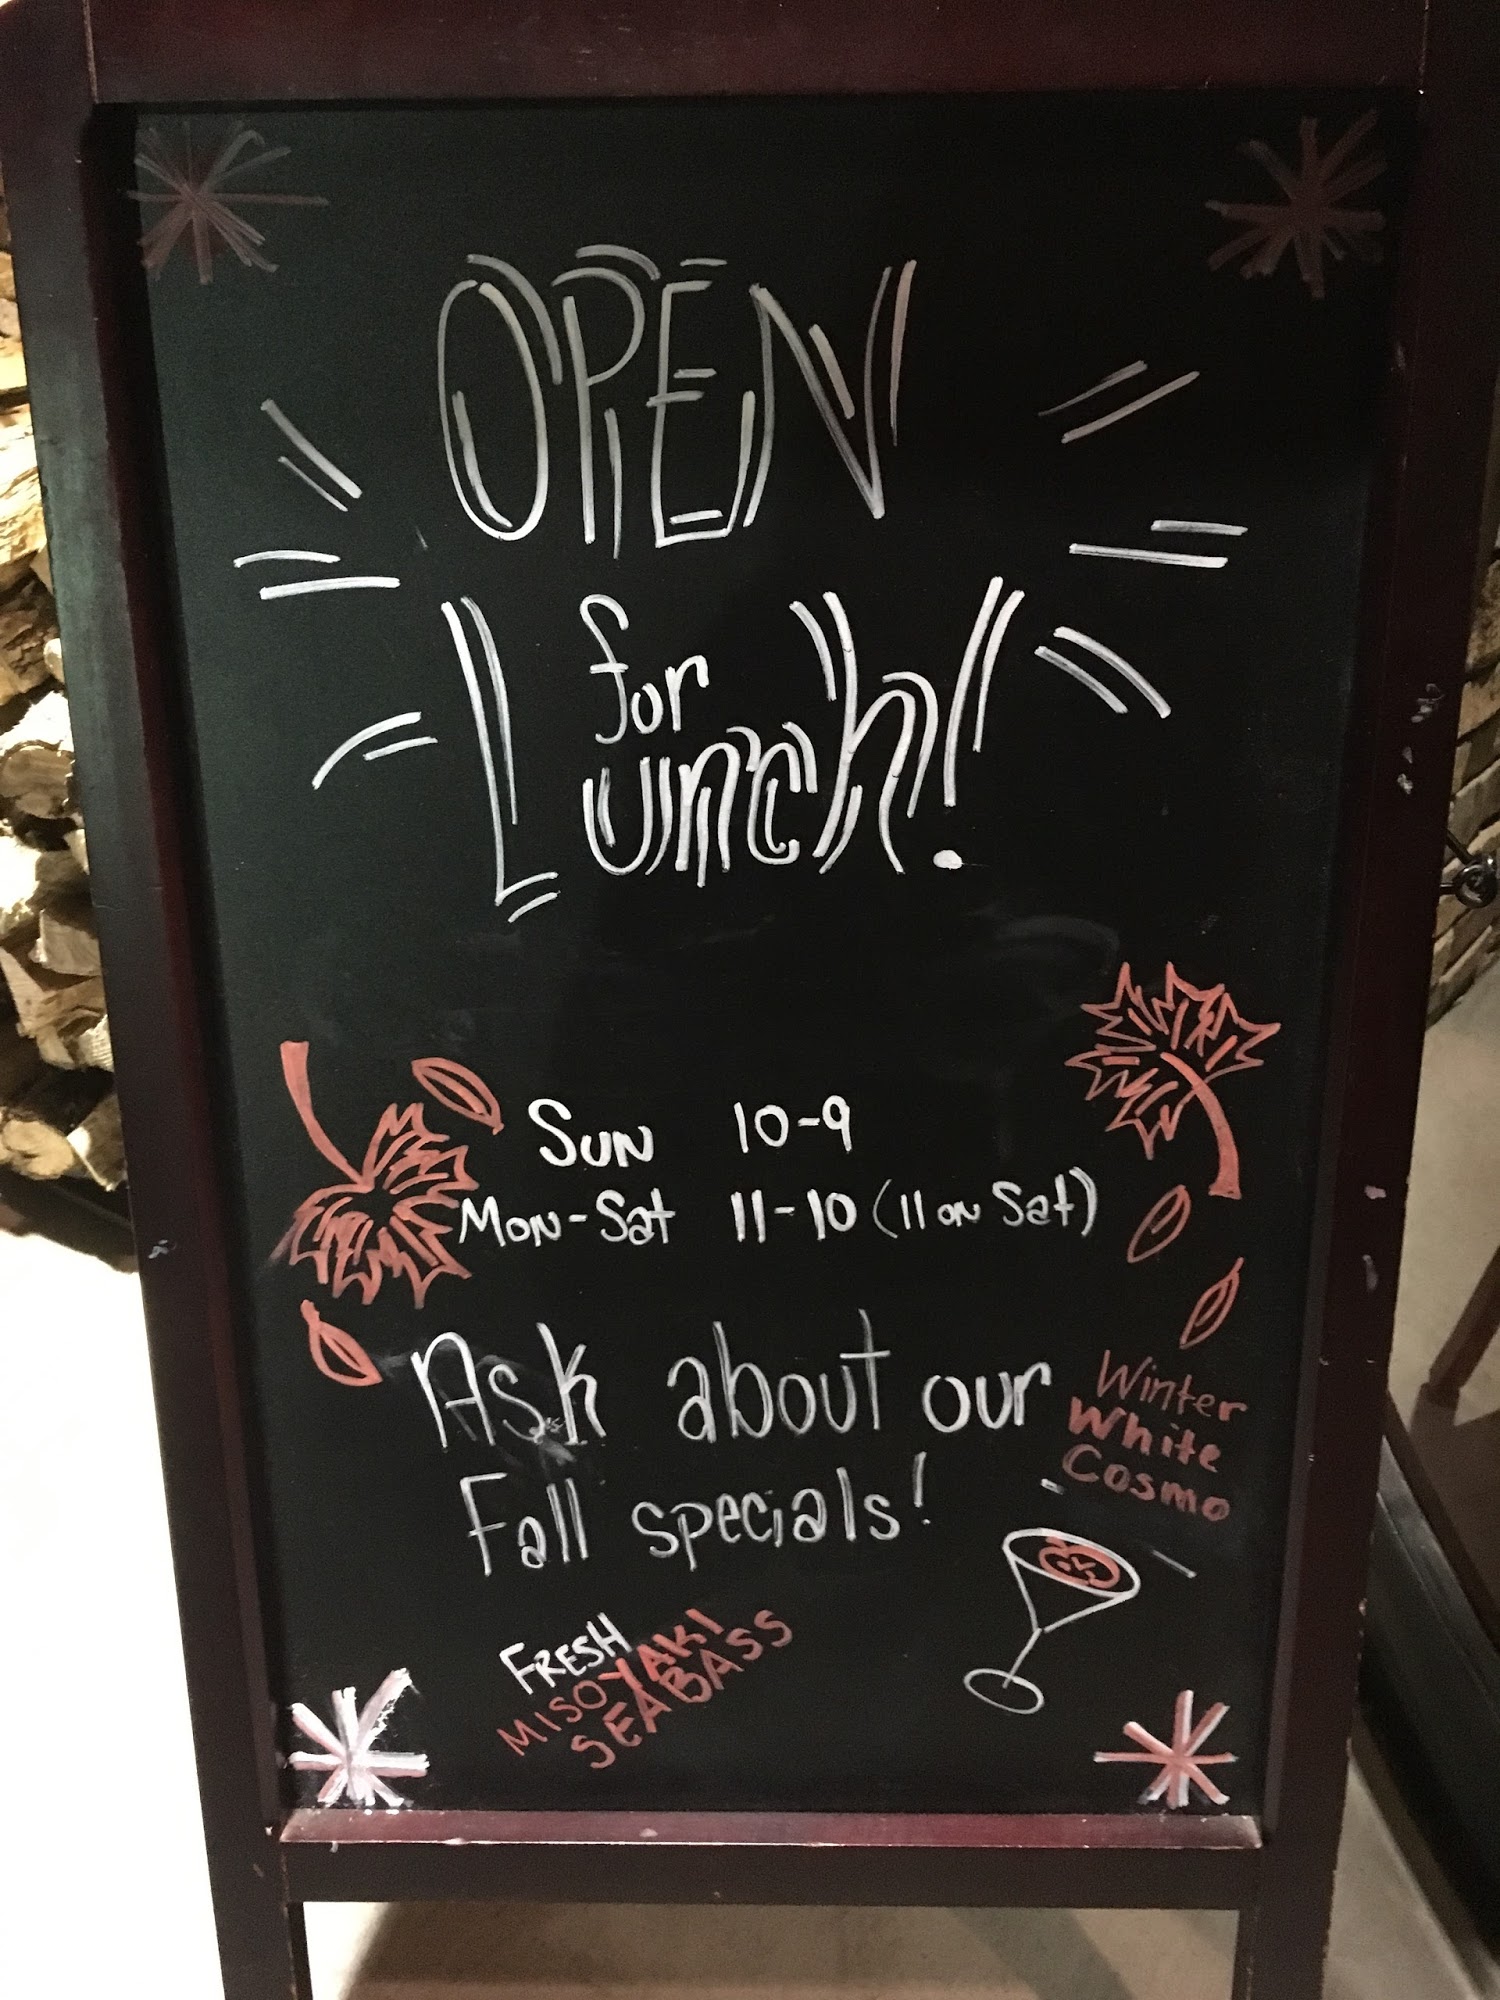 OPEN
for
Lunch!
SUN 10-9
MON-Sat 11-10 (11 ON Sat)
Ask about our
Fall specials!
Winter
White
Cosmo
FRESH
MISOYAKI
SEABASS